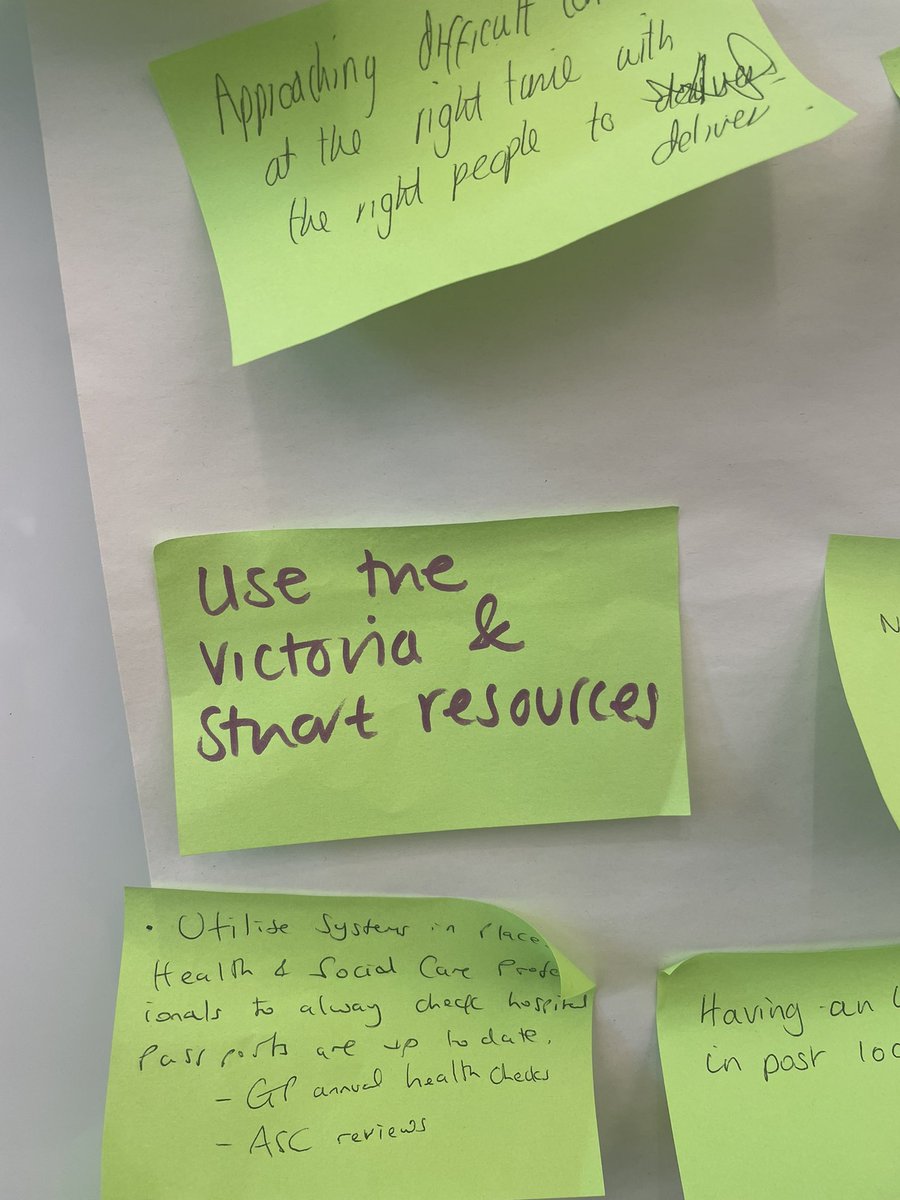 Approaching difficult
at the right time with
the right people to
deliver.
Use the
Victoria &
Stuart resources
• Utilise Systems in Place
Health & Social Care Profe
ionals to alway check hospital
Passports are up to date.
- GP annual health checks
- ASC reviews
Having an
in post loc
N